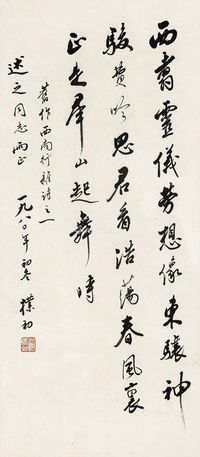 西看灵仪劳想像东骧神
骏费吟思君看浩荡春风里
正是群山起舞时
旧作西南行杂诗之一
述之同志两正
一九八〇年初冬 朴初